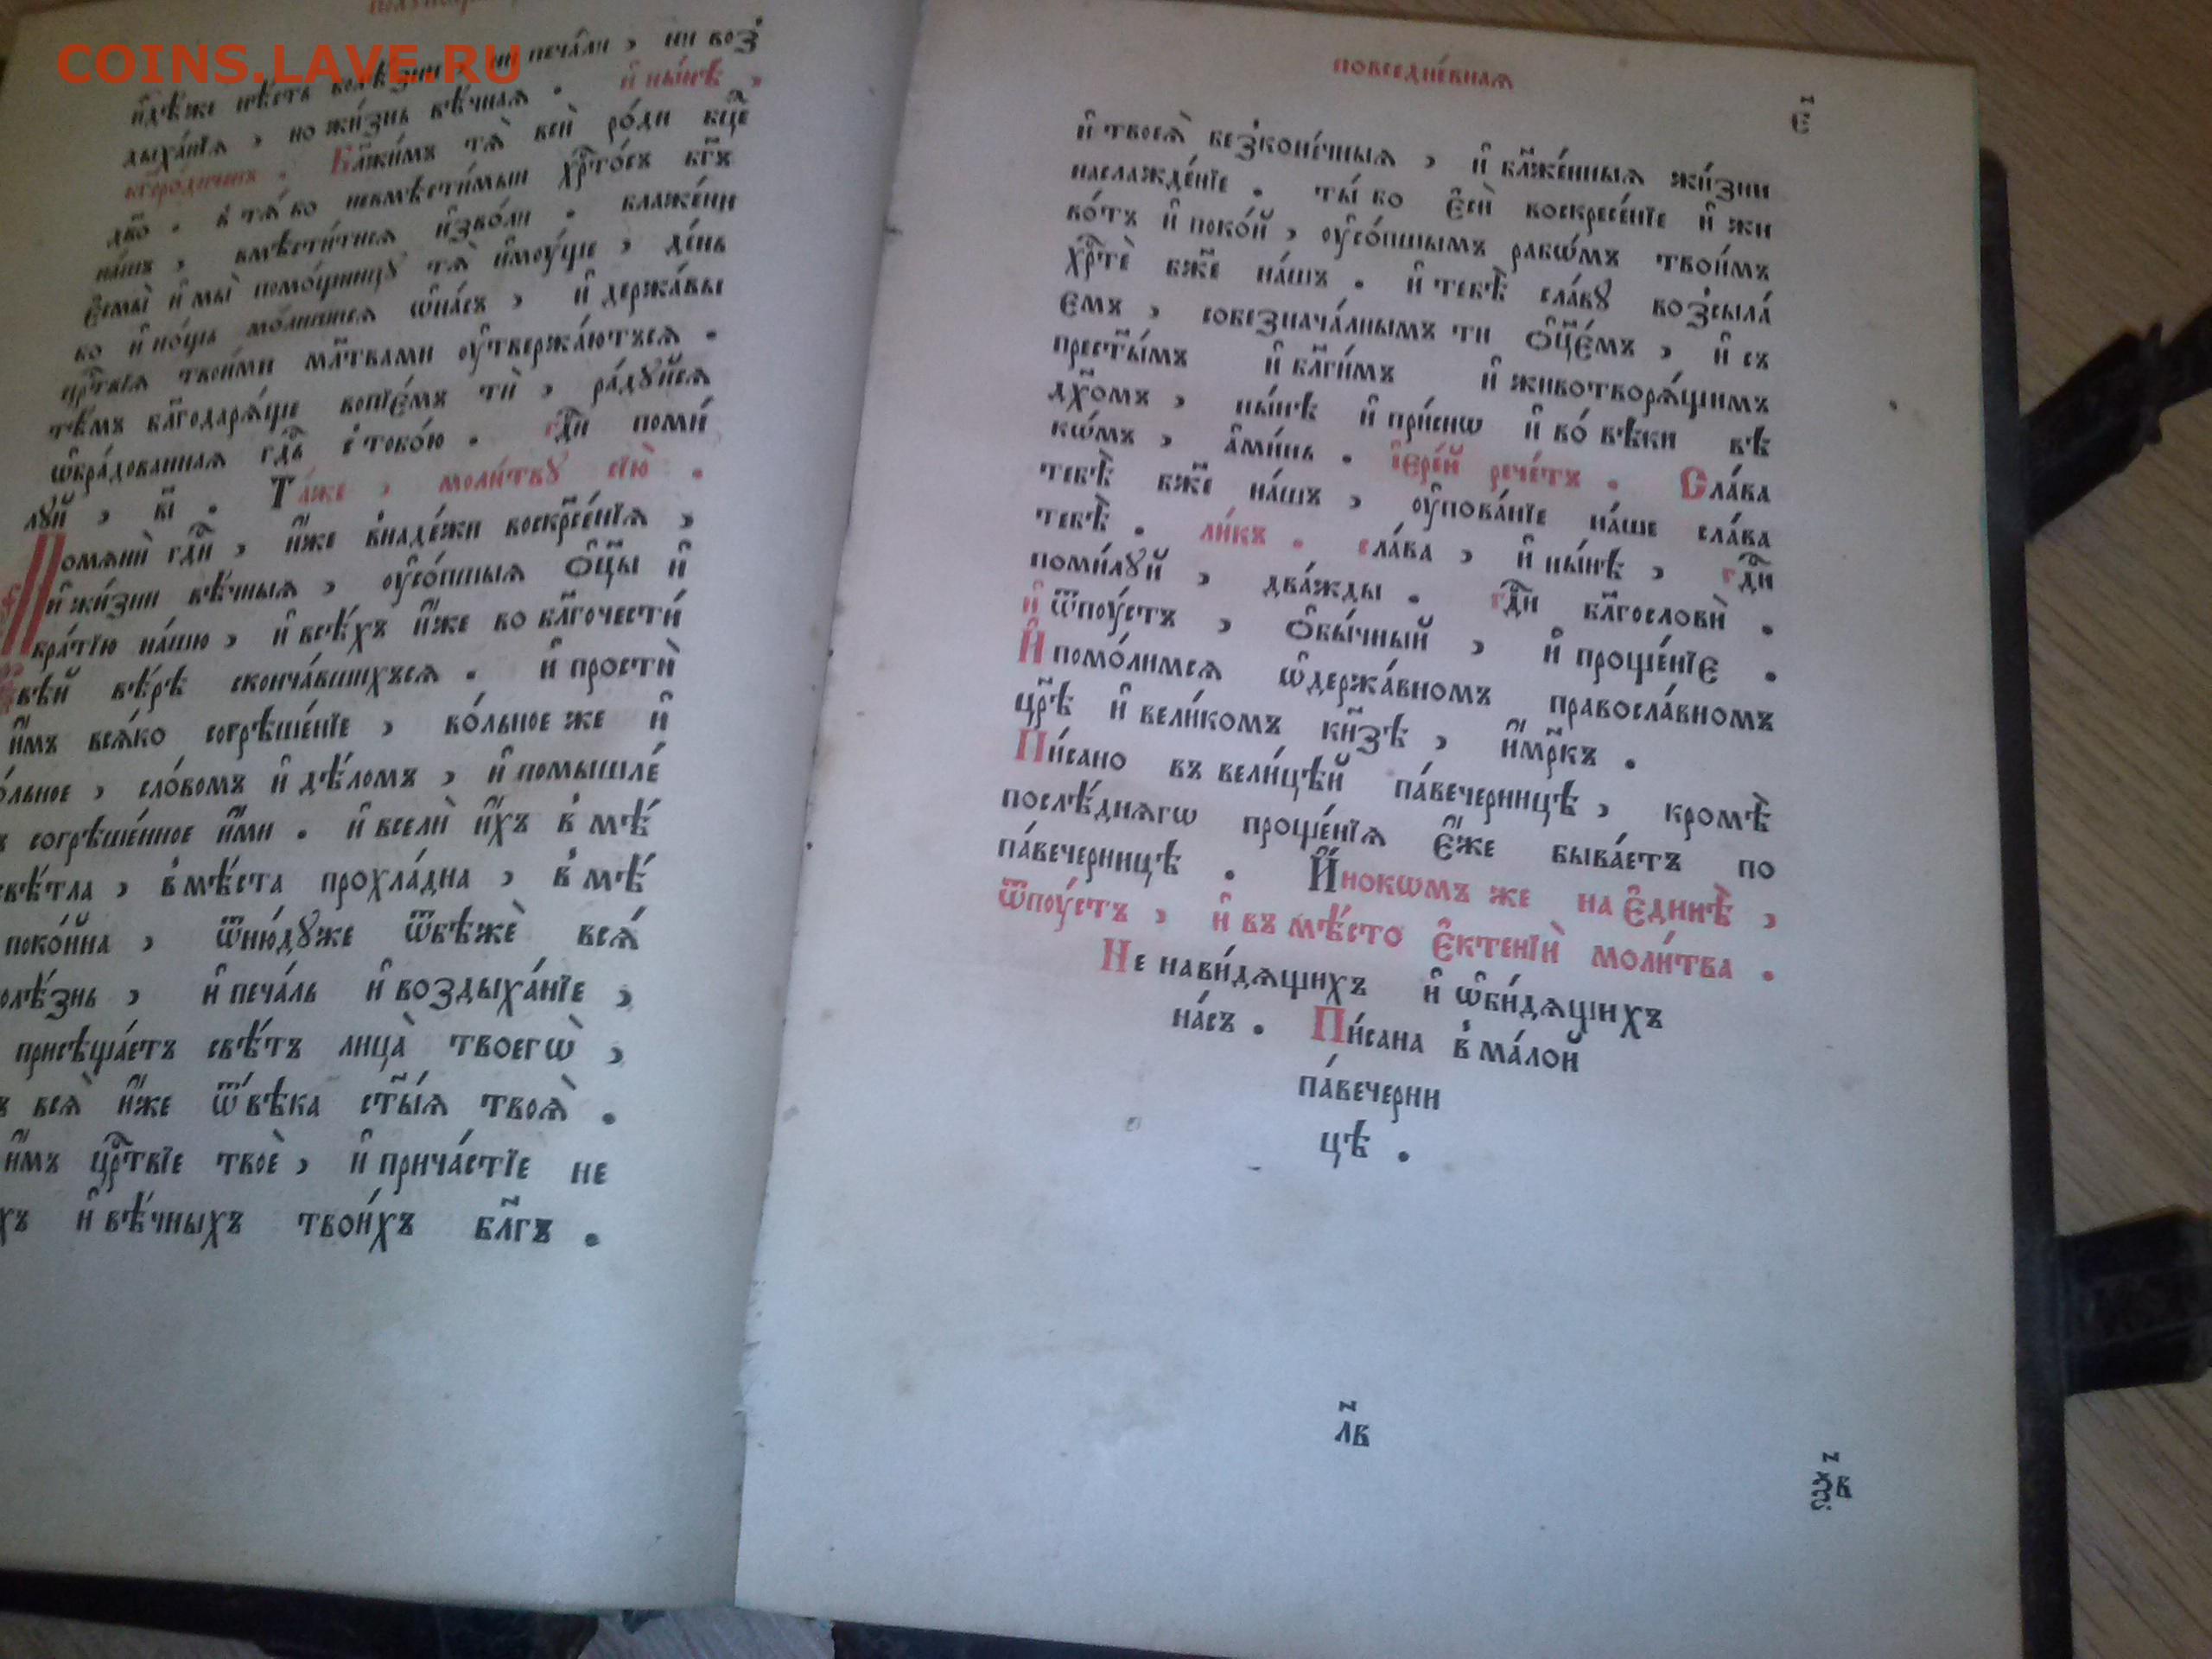 COINS.LAVE.RU
и҆дѣ́же нѣ́сть болѣ́зни ни печа́ли , ни воз̾
дыха́нїѧ , но жи́знь вѣ́чнаѧ . и҆ ны́нѣ ,
бг҃оро́диченъ . Бл҃жи́мъ тѧ̀ вси̑ ро́ди бц҃е
дв҃о . в̾ тѧ́ бо невмѣсти́мыи хрⷭ҇то́съ бг҃ъ
на́шъ , вмѣсти́тисѧ и҆зво́ли . блаже́ни
є҆смы̀ и҆ мы̀ помо́щницꙋ тѧ̀ и҆мꙋ́ще , де́нь
бо и҆ но́щь мо́лишисѧ ѡ҆на́съ , и҆ держа́вы
црⷭ҇твїѧ твои́ми мл҃твами ᲂу҆твержа́ютъсѧ .
тѣ́мъ бл҃годарѧ́ще вопїе́мъ тѝ , ра́дꙋйсѧ
ѡ҆бра́дованнаѧ гдⷭ҇ь с̾ тобо́ю . гдⷭ҇и поми́
лꙋй , в҃і . Та́же , моли́твꙋ сїю̀ .
Помѧнѝ гдⷭ҇и , и҆́же в̾наде́жи воскрⷭ҇е́нїѧ ,
и҆ жи́зни вѣ́чныѧ , ᲂу҆со́пшыѧ ѻ҆ц҃ы и҆
бра́тїю на́шю , и҆ всѣ́хъ и҆́же во бл҃гочести́
вѣй вѣ́рѣ сконча́вшихъсѧ . и҆ простѝ
и҆̀мъ всѧ́ко согрѣше́нїе , во́льное же и҆
о́льное , сло́вомъ и҆ дѣ́ломъ , и҆ помышле́
согрѣше́нное и҆́ми . и҆ вселѝ и҆́хъ в̾ мѣ́
свѣ́тла , в̾ мѣ́ста прохла́дна , в̾ мѣ́
поко́йна , ѿню́дꙋже ѿбѣжѐ всѧ́
олѣ́знь , и҆ печа́ль и҆ воздыха́нїе ,
присѣща́етъ свѣ́тъ лица̀ твоегѡ̀ ,
всѧ̀ и҆́же ѿ вѣка ст҃ы́ѧ твоѧ̀ .
и҆́мъ црⷭ҇твїе твоѐ , и҆ прича́стїе не
хъ и҆ вѣ́чныхъ твои́хъ бл҃гъ .
повседне́внаѧ
є҃
и҆ твоеѧ̀ без̾коне́чныѧ , и҆ бл҃же́нныѧ жи́зни
наслажде́нїе . ты́ бо є҆сѝ воскресе́нїе и҆ жи
во́тъ и҆ поко́й , ᲂу҆со́пшымъ рабѡ́мъ твои́мъ
хрⷭ҇тѐ бж҃е на́шъ . и҆ тебѣ̀ сла́вꙋ воз̾сыла́
емъ , собезнача́лнымъ ти ѻ҆ц҃е́мъ , и҆ съ
прест҃ы́мъ и҆ бл҃ги́мъ и҆ животворѧ́щимъ
дх҃омъ , ны́нѣ и҆ при́снѡ и҆ во́ вѣки вѣ
кѡ́мъ , а҆ми́нь . і҆ере́й рече́тъ . Сла́ва
тебѣ̀ бж҃е на́шъ , ᲂу҆пова́нїе на́ше сла́ва
тебѣ̀ . ли́къ . сла́ва , и҆ ны́нѣ , гдⷭ҇и
поми́лꙋй , два́жды . гдⷭ҇и бл҃гословѝ .
и҆ ѿпꙋ́стъ , ѻ҆бы́чный , и҆ проще́нїе .
И҆ помо́лимсѧ ѡ҆держа́вномъ правосла́вномъ
цр҃ѣ и҆ вели́комъ кн҃зѣ , и҆́мр҃къ .
Пи́сано въ вели́цѣй па́вечерницѣ , кромѣ̀
послѣ́днѧгѡ проще́нїѧ є҆́же быва́етъ по
па́вечерницѣ . И҆́нокѡмъ же на є҆динѣ̀ ,
ѿпꙋ́стъ , и҆ въ мѣ́сто є҆ктенїѝ моли́тва .
Не нави́дѧщихъ и҆ ѡ҆би́дѧщихъ
на́съ . Пи́сана в̾ ма́лой
па́вечерни
цѣ .
л҃в